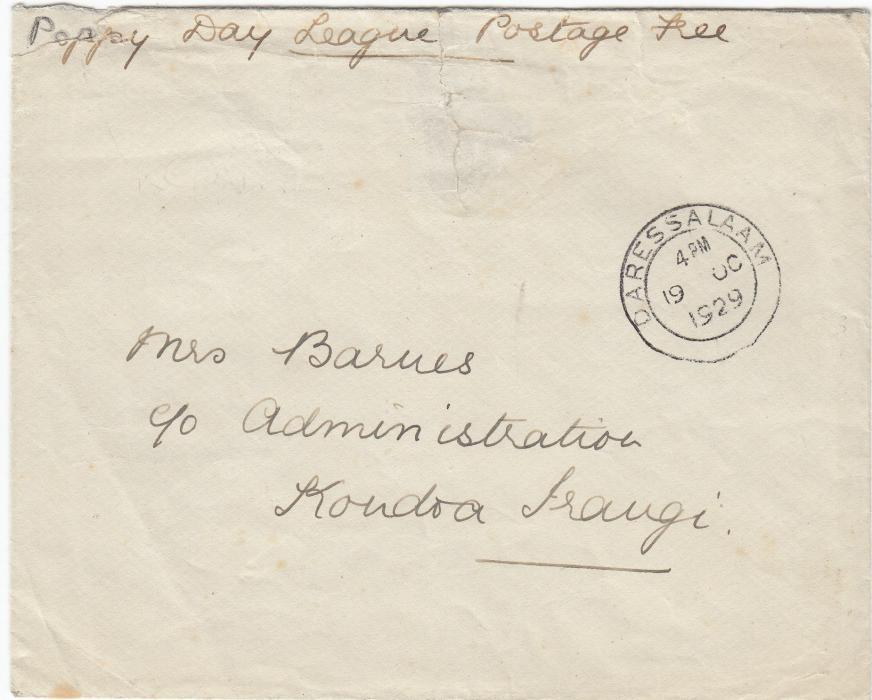 Poppy Day League Postage Free
DARESSALAAM
4 PM
19 OC
1929
Mrs Barnes
c/o Administration
Kondoa Irangi.